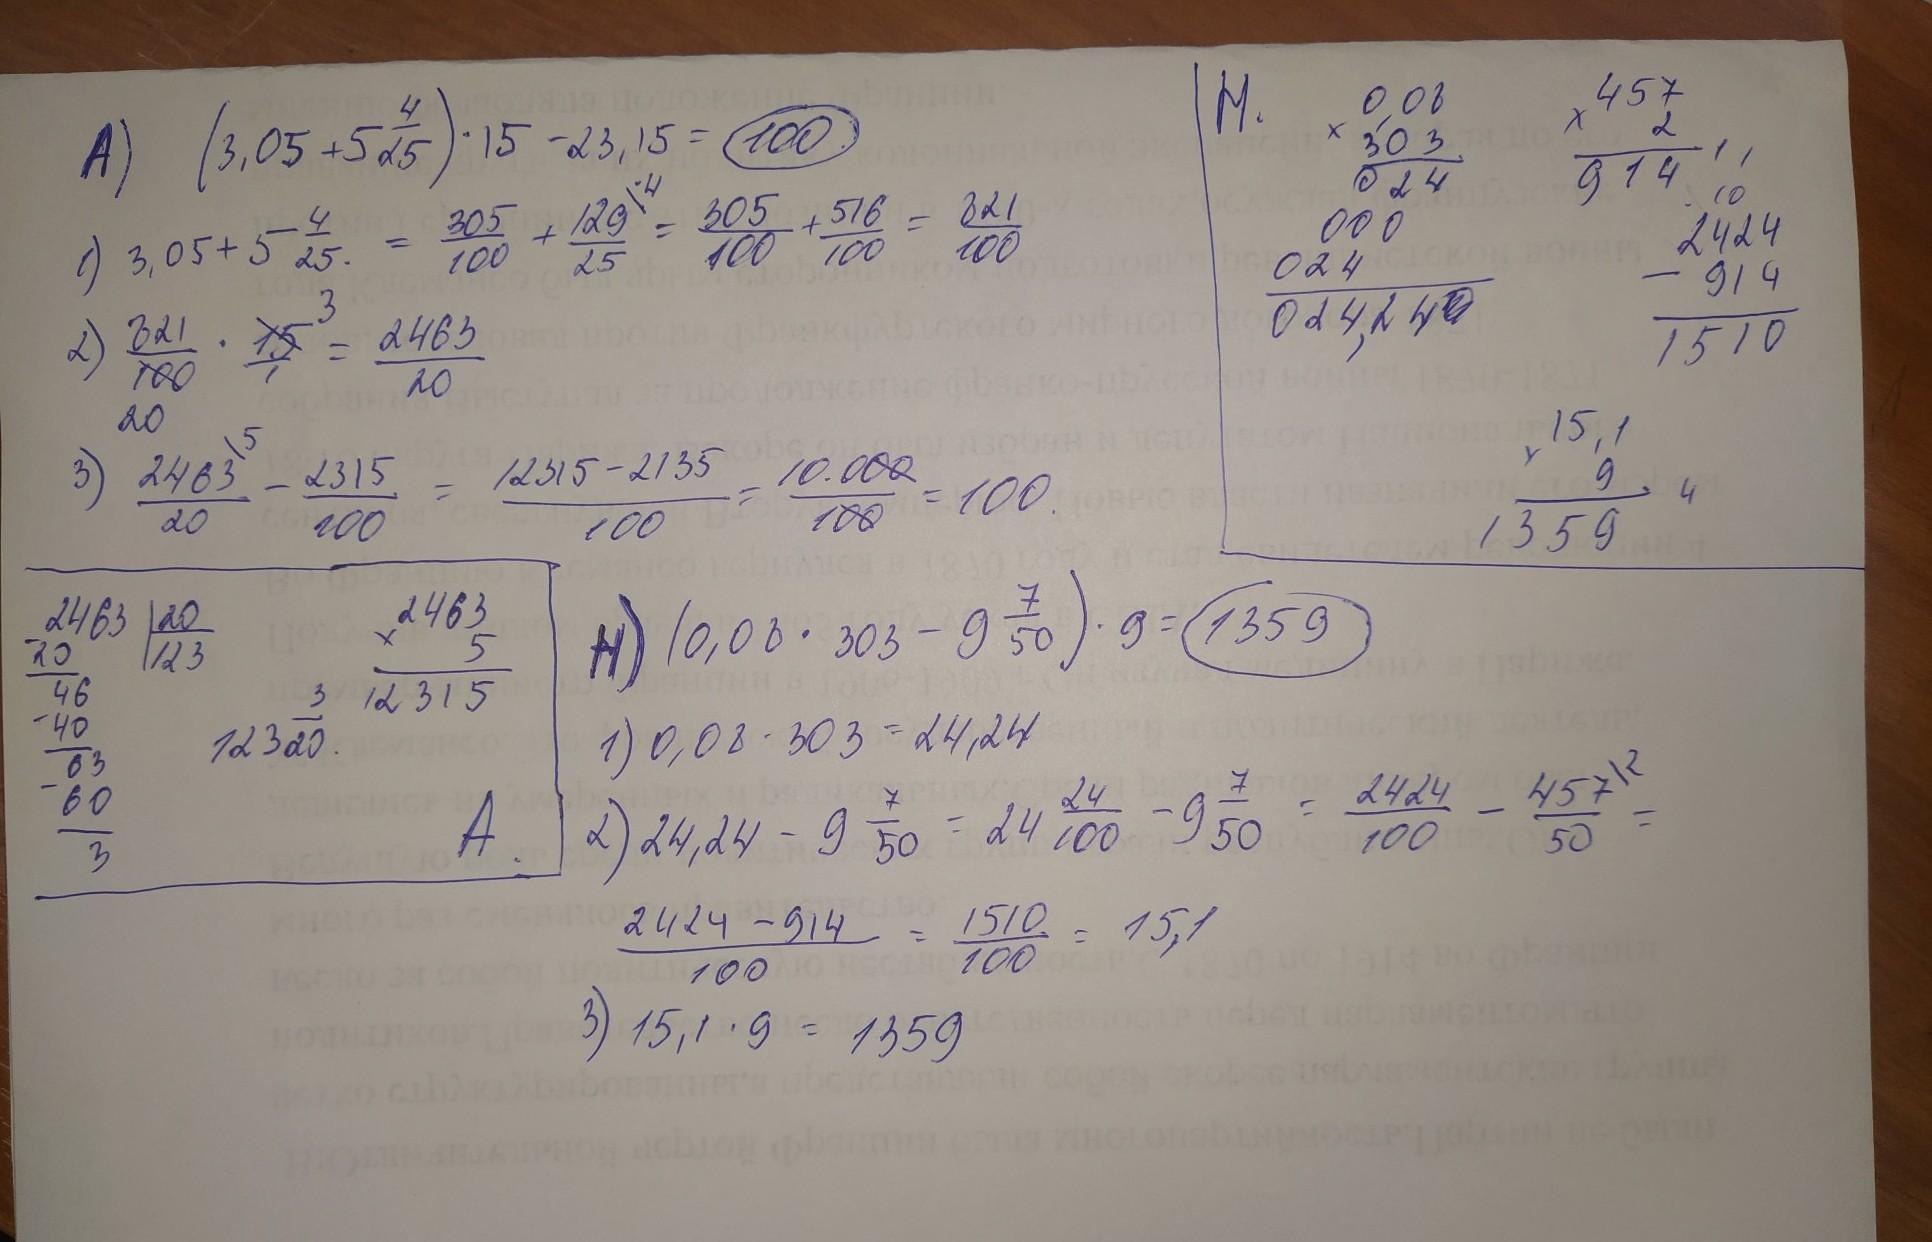 А) (3,05 + 5 4/25) · 15 - 23,15 = 100
1) 3,05 + 5 4/25 = 305/100 + 129/25 \·4 = 305/100 + 516/100 = 821/100
2) 821/100 · 15/1 = 2463/20
20 3
3) 2463/20 \5 - 2315/100 = 12315 - 2135/100 = 10.000/100 = 100.
Н.
0,08
× 303
024
000
024
024,24
457
× 2
914
2424
- 914
1510
15,1
× 9
1359
4
2463 | 20
- 20 | 123
46
- 40
63
- 60
3
2463
× 5
12315
123 3/20.
А.
Н) (0,08 · 303 - 9 7/50) · 9 = 1359
1) 0,08 · 303 = 24,24
2) 24,24 - 9 7/50 = 24 24/100 - 9 7/50 = 2424/100 - 457/50 \2 =
2424 - 914/100 = 1510/100 = 15,1
3) 15,1 · 9 = 1359